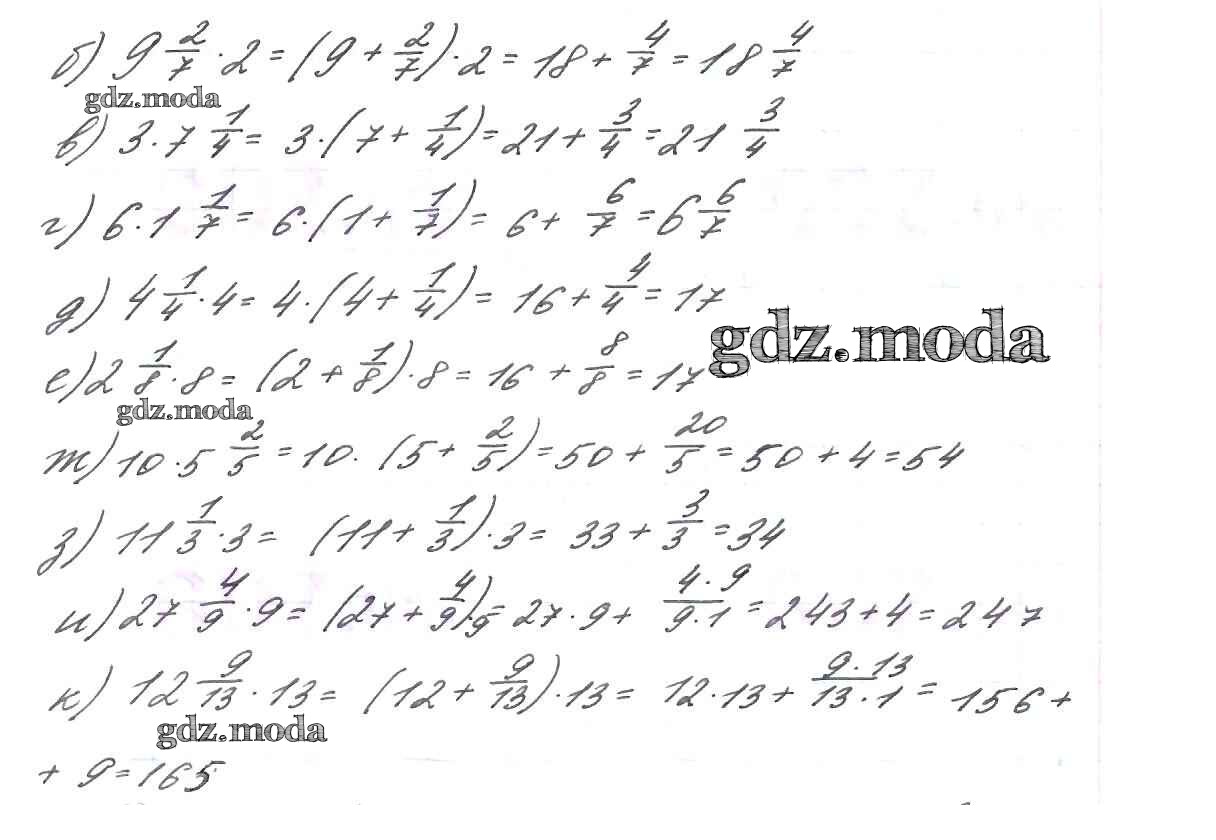 б) 9 2/7 · 2 = (9 + 2/7) · 2 = 18 + 4/7 = 18 4/7
gdz.moda
в) 3 · 7 1/4 = 3 · (7 + 1/4) = 21 + 3/4 = 21 3/4
г) 6 · 1 1/7 = 6 · (1 + 1/7) = 6 + 6/7 = 6 6/7
д) 4 1/4 · 4 = 4 · (4 + 1/4) = 16 + 4/4 = 17
gdz.moda
е) 2 1/8 · 8 = (2 + 1/8) · 8 = 16 + 8/8 = 17
gdz.moda
ж) 10 · 5 2/5 = 10 · (5 + 2/5) = 50 + 20/5 = 50 + 4 = 54
з) 11 1/3 · 3 = (11 + 1/3) · 3 = 33 + 3/3 = 34
и) 27 4/9 · 9 = (27 + 4/9) · 9 = 27 · 9 + 4 · 9/9 · 1 = 243 + 4 = 247
к) 12 9/13 · 13 = (12 + 9/13) · 13 = 12 · 13 + 9 · 13/13 · 1 = 156 +
gdz.moda
+ 9 = 165